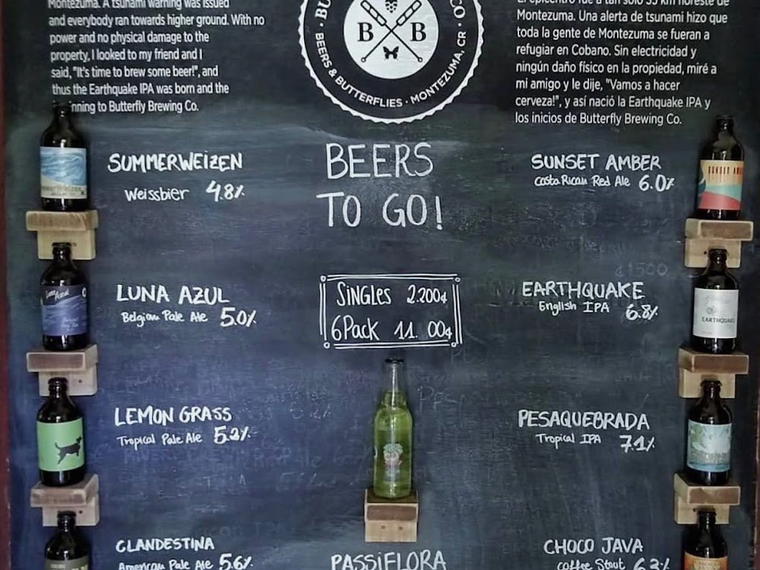 Montezuma. A tsunami warning was issued
and everybody ran towards higher ground. With no
power and no physical damage to the
property, I looked to my friend and I
said, "It's time to brew some beer!", and
thus the Earthquake IPA was born and the
nning to Butterfly Brewing Co.
CO.
B B
BEERS & BUTTERFLIES · MONTEZUMA, CR
El epicentro fue a tan solo 35 km noreste de
Montezuma. Una alerta de tsunami hizo que
toda la gente de Montezuma se fueran a
refugiar en Cobano. Sin electricidad y
ningún daño físico en la propiedad, miré a
mi amigo y le dije, "Vamos a hacer
cerveza!", y así nació la Earthquake IPA y
los inicios de Butterfly Brewing Co.
BEERS
TO GO!
SUMMERWEIZEN
Weissbier 4.8%
LUNA AZUL
Belgian Pale Ale 5.0%
LEMON GRASS
Tropical Pale Ale 5.2%
CLANDESTINA
American Pale Ale 5.6%
SiNGLES 2.200¢
6Pack 11. 00¢
PASSiFLORA
SUNSET AMBER
Costa Rican Red Ale 6.0%
EARTHQUAKE
English IPA 6.8%
EARTHQUAKE
PESAQUEBRADA
Tropical IPA 7.1%
CHOCO JAVA
Coffee Stout 6.3%